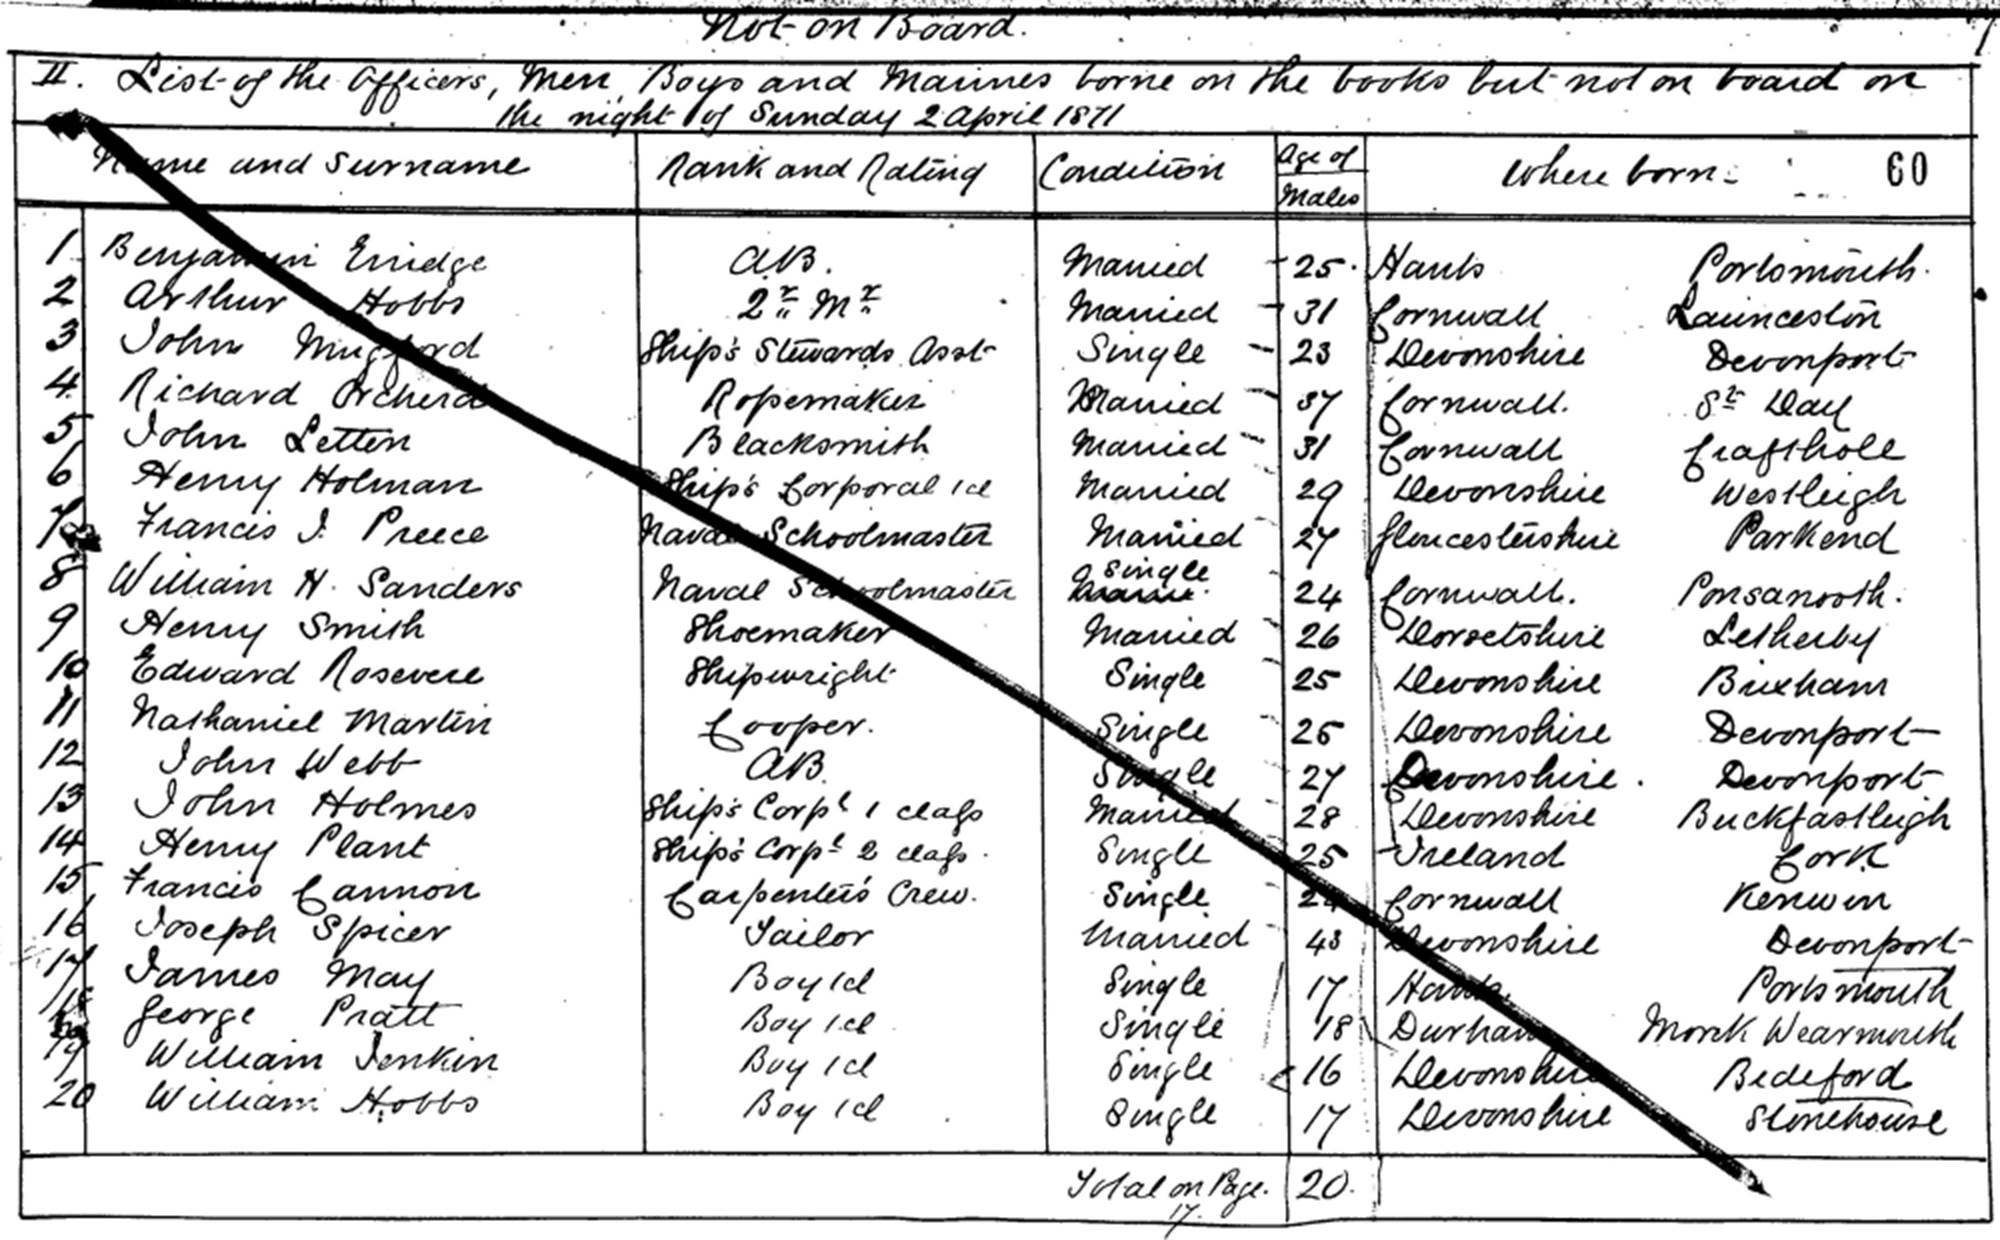 Not on Board.
II. List of the Officers, Men, Boys and Marines borne on the books but not on board on
the night of Sunday 2 April 1871
Name and Surname Rank and Rating Condition Age of Males Where born 60
1 Benjamin AB. Married 25 Hants Portsmouth.
2 Arthur Hobbs 2r Mr Married 31 Cornwall Launceston
3 John Mugford Ship's Stewards Asst Single 23 Devonshire Devonport
4 Richard Orcherd Ropemaker Married 37 Cornwall. St Day
5 John Letten Blacksmith Married 31 Cornwall Crafthole
6 Henry Holman Ship's Corporal 1cl Married 29 Devonshire Westleigh
7 Francis J. Preece Naval Schoolmaster Married 27 Gloucestershire Parkend
8 William H. Sanders Naval Schoolmaster Single 24 Cornwall. Ponsanooth.
9 Henry Smith Shoemaker Married 26 Dorsetshire Letherby
10 Edward Rosevere Shipwright Single 25 Devonshire Brixham
11 Nathaniel Martin Cooper. Single 26 Devonshire Devonport
12 John Webb AB. Single 27 Devonshire. Devonport
13 John Holmes Ship's Corpl 1 class Married 28 Devonshire Buckfastleigh
14 Henry Plant Ship's Corpl 2 class. Single 25 Ireland Cork
15 Francis Cannon Carpenter's Crew. Single Cornwall Kenwin
16 Joseph Spicer Tailor Married 43 Devonshire Devonport
17 James May Boy 1cl Single 17 Hants Portsmouth
18 George Pratt Boy 1cl Single 18 Durham Monk Wearmouth
19 William Jenkin Boy 1cl Single 16 Devonshire Bedeford
20 William Hobbs Boy 1cl Single 17 Devonshire Stonehouse
Total on Page. 20.
17.